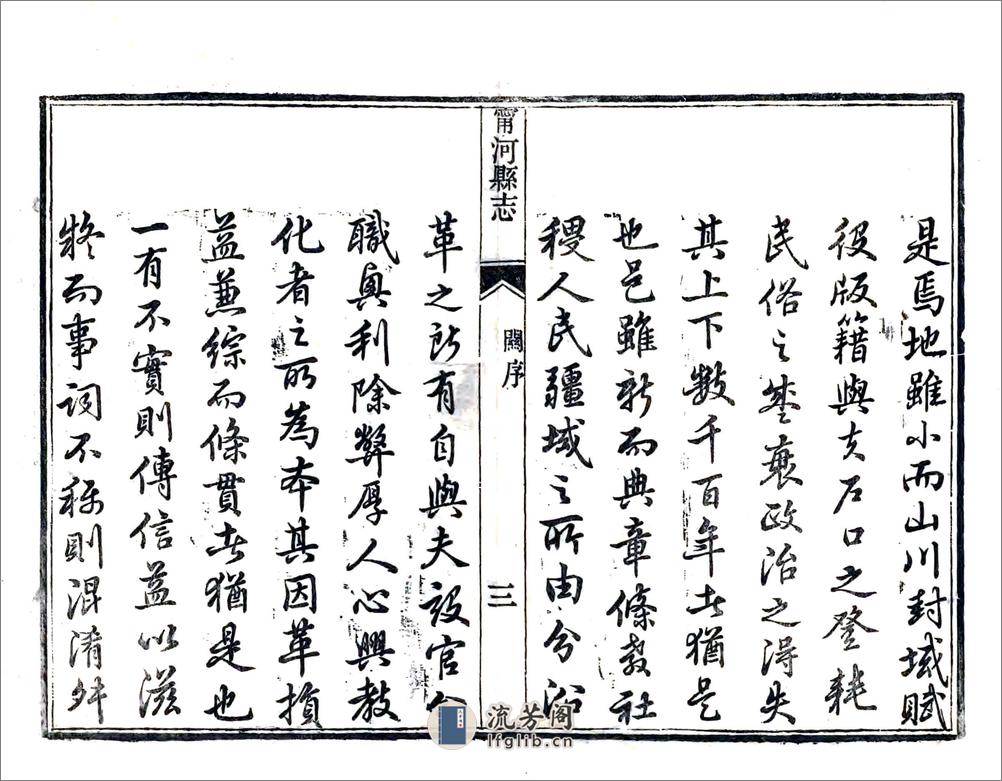 是焉地雖小而山川封域賦
役版籍與夫户口之登耗
民俗之盛衰政治之得失
其上下數千百年者猶是
也邑雖新而典章條教社
稷人民疆域之所由分沿
甯河縣志
關序
三
革之所有自與夫設官分
職興利除弊厚人心興教
化者之所為本其因革損
益兼綜而條貫者猶是也
一有不實則傳信益以滋
終而事詞不稱則混淆舛
流芳阁
lfglib.cn